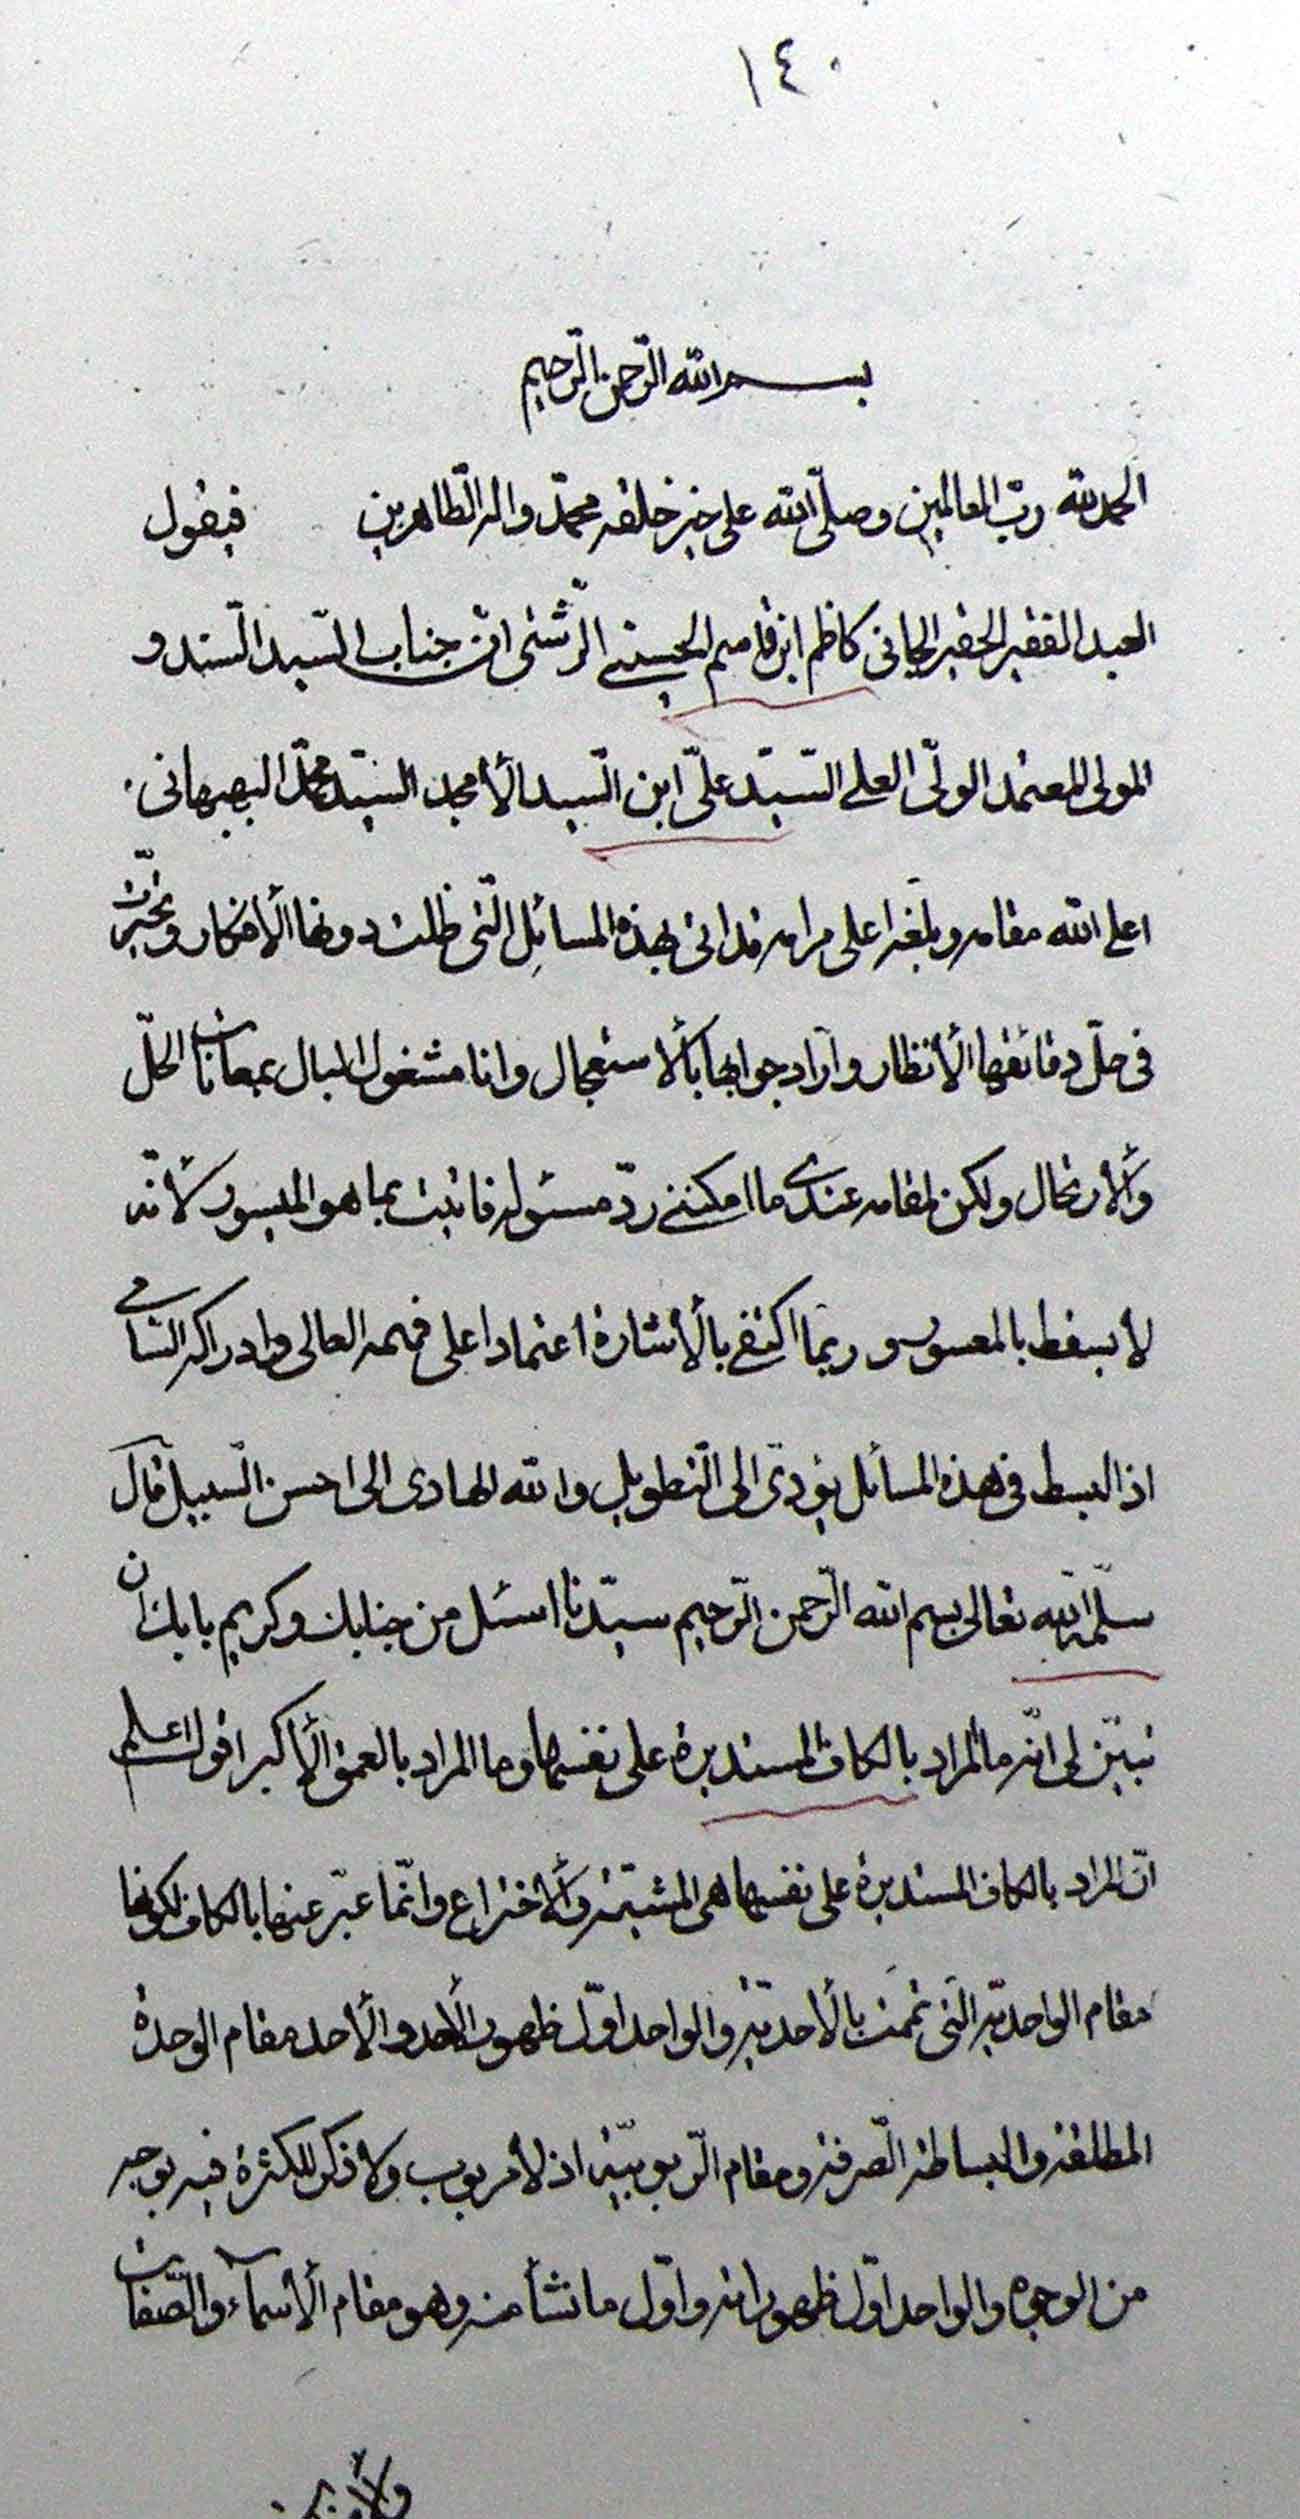 ١٤٠
بسم الله الرحمن الرحيم
الحمد لله رب العالمين وصلّى الله على خير خلقه محمّد واله الطّاهرين فيقول
العبد الفقير الحقير الجاني كاظم ابن قاسم الحسيني الرّشتي انّ جناب السّيد السّند و
المولى المعتمد الولّى العلي السّيّد علىّ ابن السّيد الأمجد السيّد محمّد البهبهانى
اعلى الله مقامه وبلغه اعلى مرامه قد اتى بهذه المسائل الّتى ظلت دونها الأفكار وتحيّرت
فى حلّ دقائقها الأنظار واراد جوابها بالأستعجال وانا مشغول البال بمعانات الحلّ
والأرتحال ولكن لمقامه عندى ما امكننى ردّ مسئوله فاتيت بما هو الميسور لأنّه
لا يسقط بالمعسور وربّما اكتفى بالأشارة اعتمادا على فهمه العالى وادراكه السّامى
اذ البسط فى هذه المسائل يؤدّى الى التّطويل والله الهادى الى احسن السّبيل قال
سلّمه الله تعالى بسم الله الرّحمن الرّحيم سيّدنا اسئل من جنابك وكريم بابك ان
تبيّن لى انّه ما المراد بالكاف المستديرة على نفسها وما المراد بالعمق الأكبر اقول اعلم
انّ المراد بالكاف المستديرة على نفسها هى المشيّة والأختراع وانّما عبّر عنها بالكاف لكونها
مقام الواحديّة الّتى تممت بالأحديّة والواحد اوّل ظهور الأحد والأحد مقام الوحدة
المطلقة والبساطة الصّرفة ومقام الرّبوبيّة اذ لا مربوب ولا ذكر للكثرة فيه بوجه
من الوجوه والواحد اوّل ظهوراته واوّل ما نشأ منه وهو مقام الأسمآء والصّفات